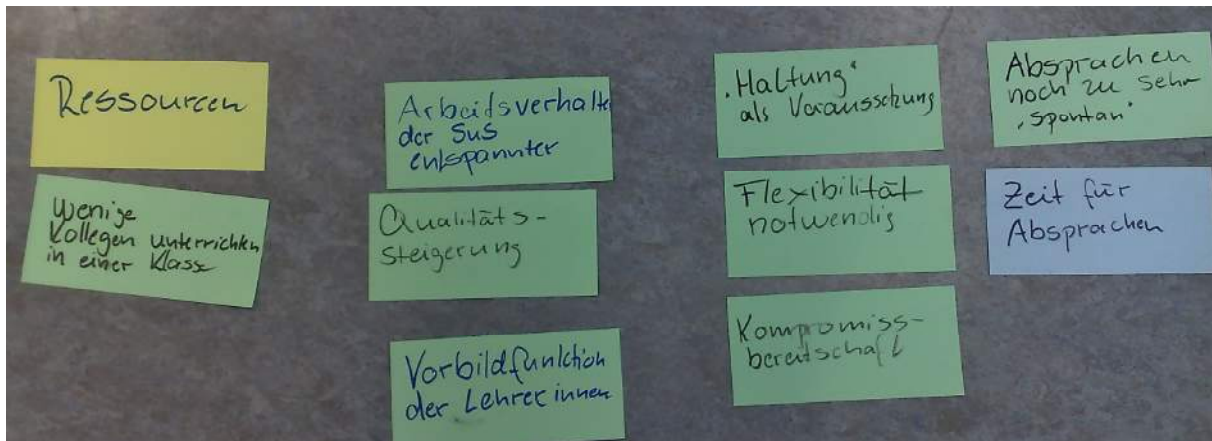 Ressourcen
Wenige
Kollegen unterrichten
in einer Klasse
Arbeitsverhalten
der SuS
entspannter
Qualitäts-
steigerung
Vorbildfunktion
der Lehrer innen
"Haltung"
als Voraussetzung
Flexibilität
notwendig
Kompromiss-
bereitschaft
Absprachen
noch zu sehr
"spontan"
Zeit für
Absprachen